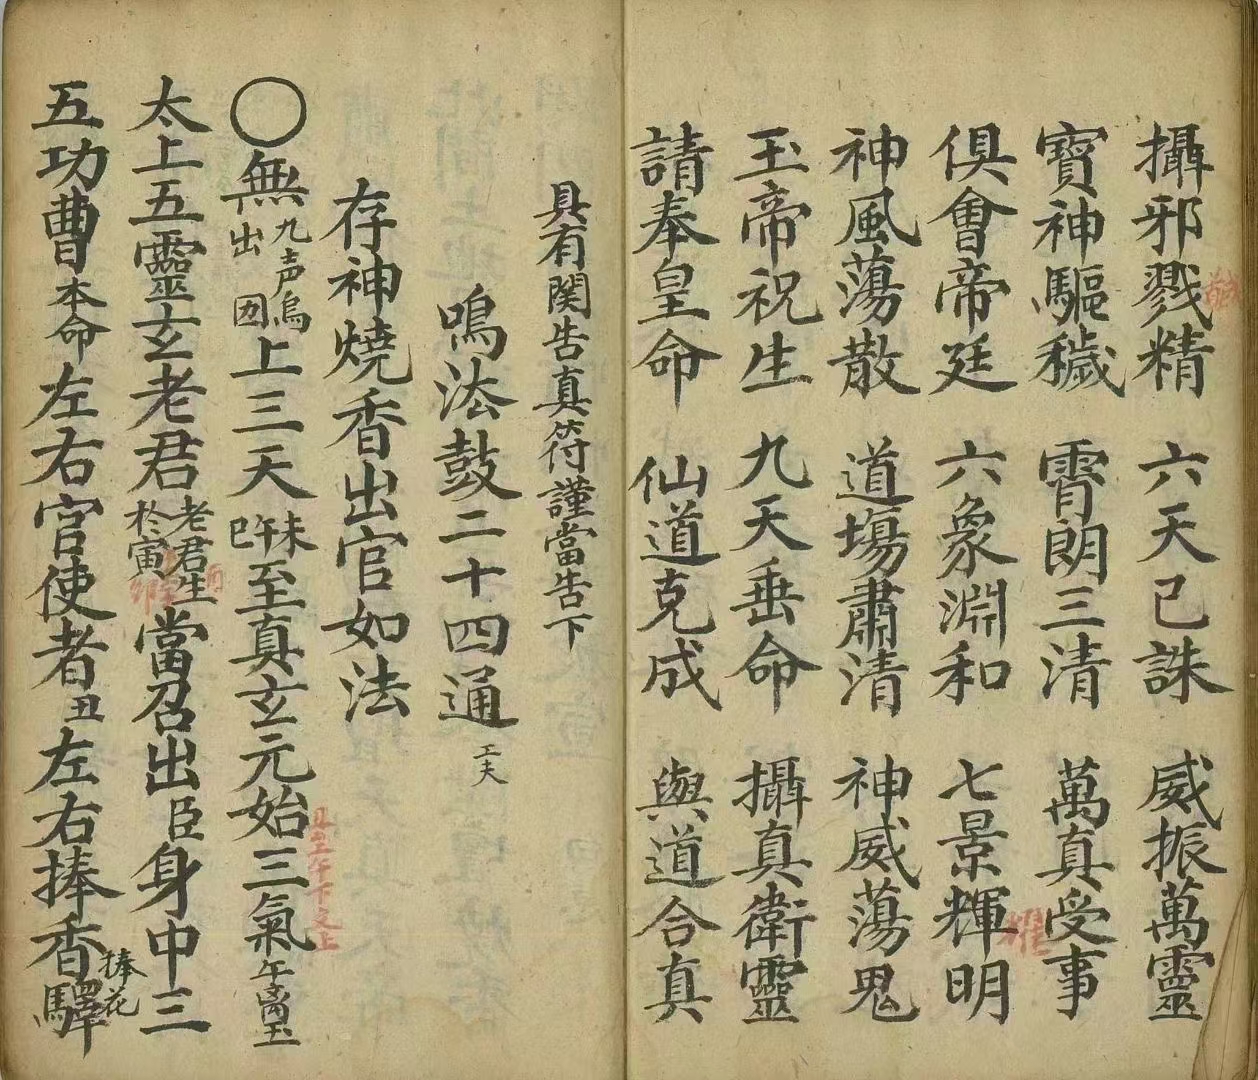 攝邪戮精　六天已誅　威振萬靈
寶神驅穢　霄朗三清　萬真受事
俱會帝廷　六象淵和　七景輝明
耀
神風蕩散　道場肅清　神威蕩鬼
玉帝祝生　九天垂命　攝真衛靈
請奉皇命　仙道克成　與道合真
具有関告真符謹當告下
鳴法鼓二十四通 工夫
存神燒香出官如法
〇無 九声鳥出囯 上三天 未午巳 至真玄元始三氣 午离玉
太上五靈玄老君 老君生於寅 當召出臣身中三
卯
五功曹 本命 左右官使者 丑 左右捧香 捧花 驛